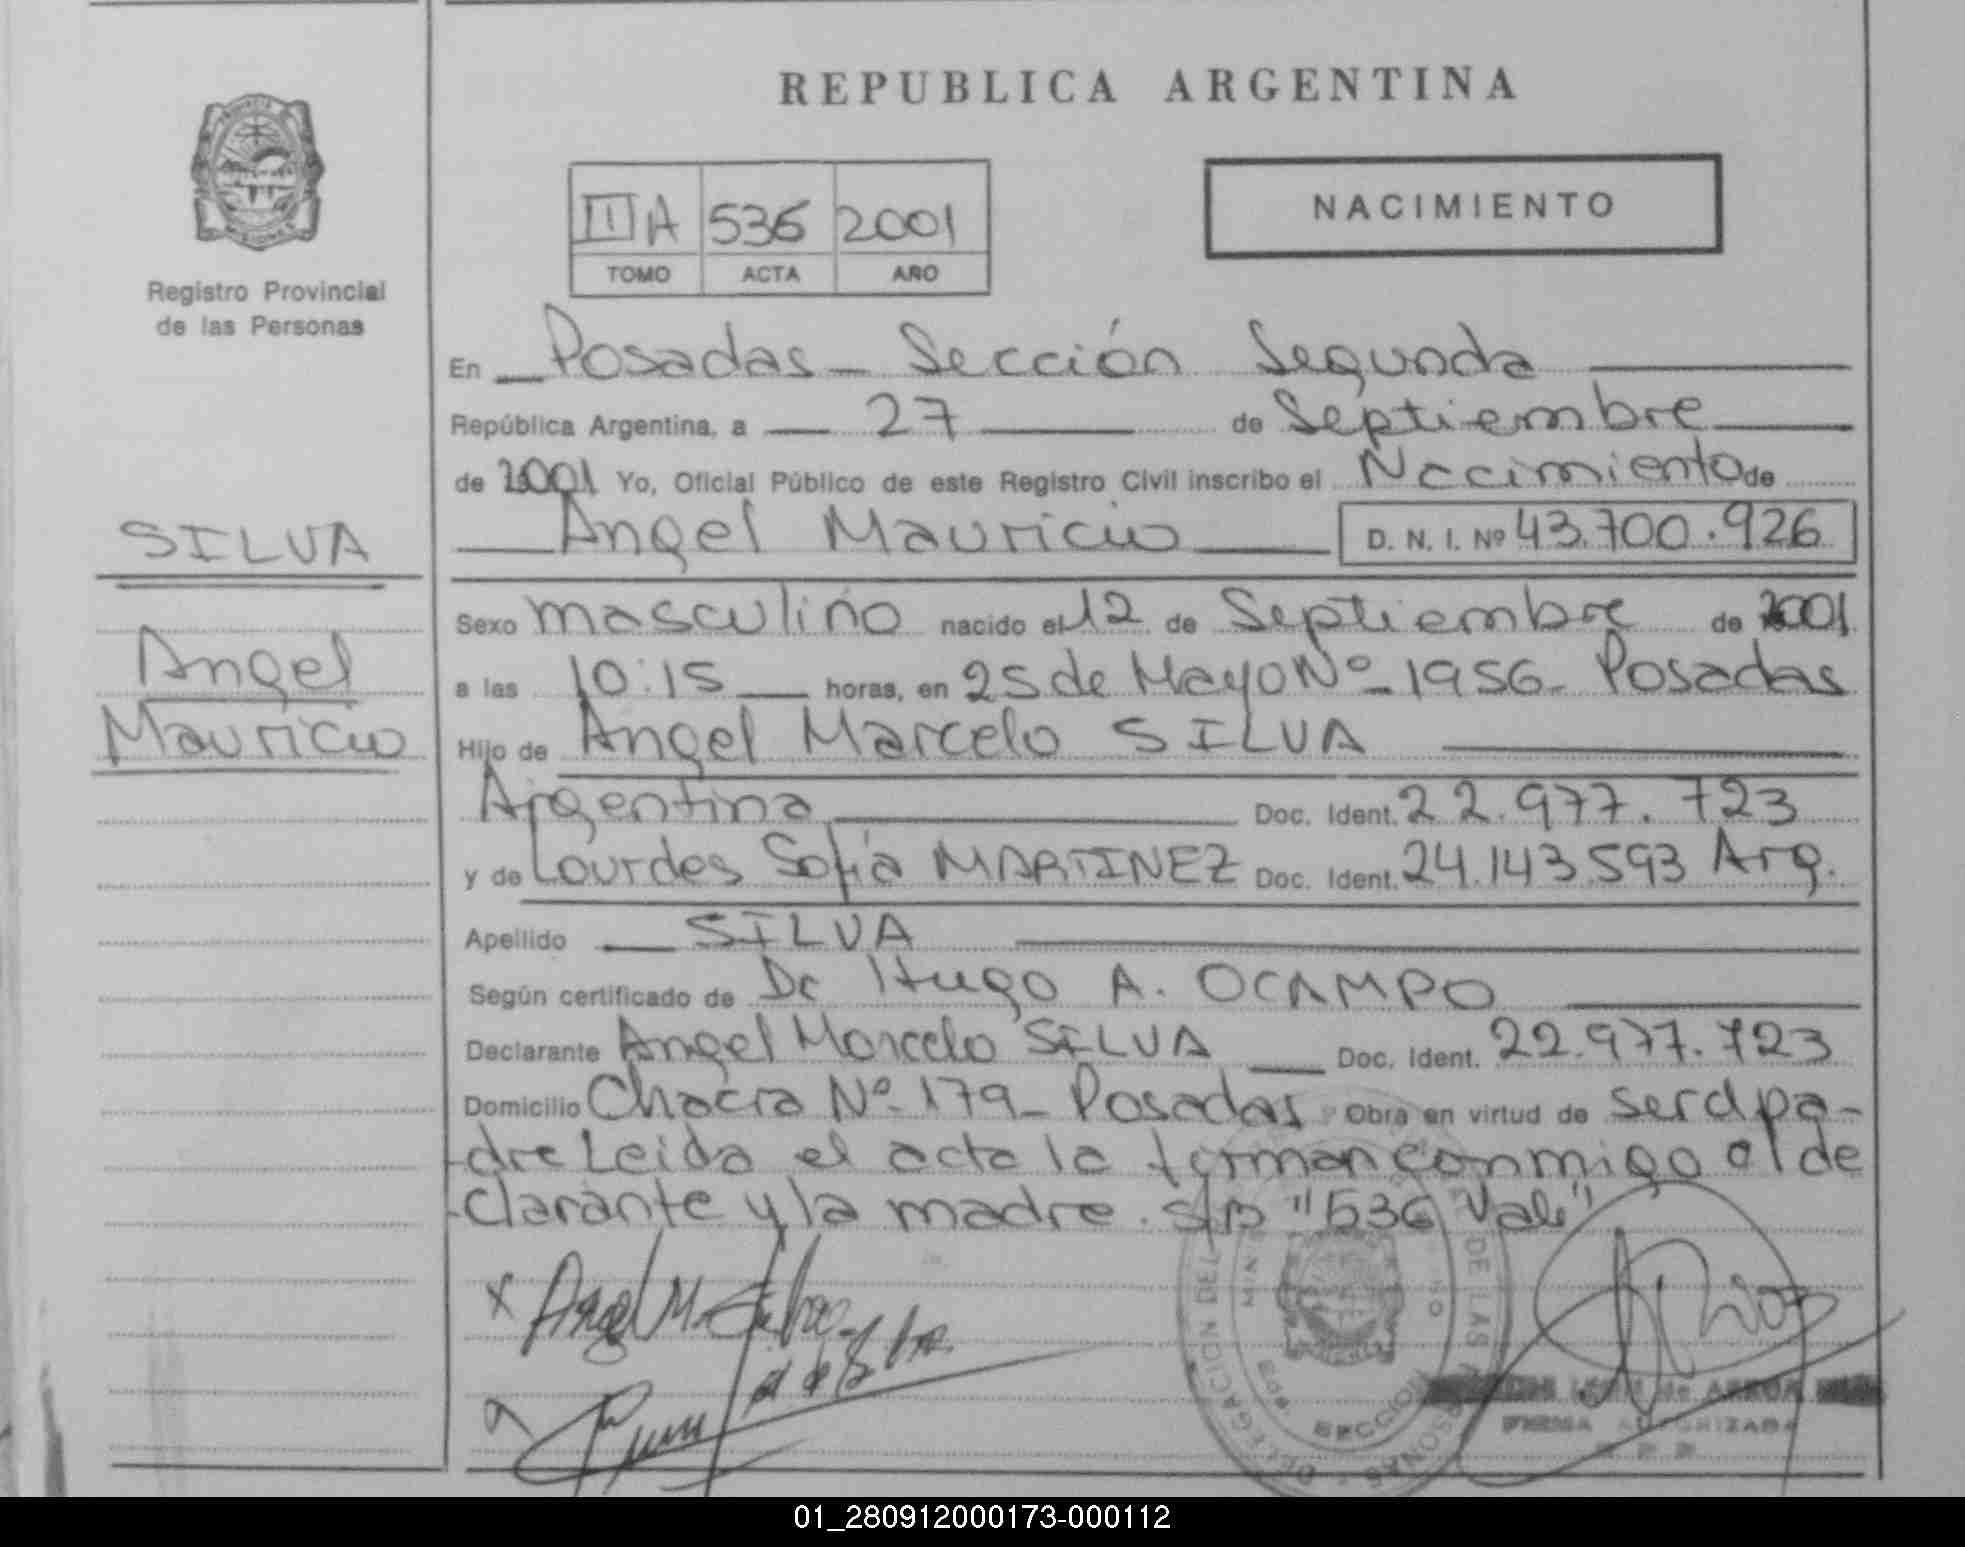 REPUBLICA ARGENTINA
NACIMIENTO
III A 536 2001
TOMO ACTA AÑO
Registro Provincial
de las Personas
SILVA
Angel
Mauricio
En Posadas - Sección Segunda
República Argentina, a 27 de Septiembre
de 2001 Yo, Oficial Público de este Registro Civil inscribo el Nacimiento de
Angel Mauricio D. N. I. Nº 43.700.926
Sexo masculino nacido el 12 de Septiembre de 2001
a las 10:15 horas, en 25 de Mayo Nº 1956 - Posadas
Hijo de Angel Marcelo SILVA
Argentina Doc. Ident. 22.977.723
y de Lourdes Sofia MARTINEZ Doc. Ident. 24.143.593 Arg.
Apellido SILVA
Según certificado de Dr Hugo A. OCAMPO
Declarante Angel Marcelo SILVA Doc. Ident. 22.977.723
Domicilio Chacra Nº 179 - Posadas Obra en virtud de ser el pa-
dre Leida el acta la forman conmigo el de
clarante y la madre. s/b "536 Vale"
x Angel M. Silva
de Silva
DELEGACION DEL DE LAS
SECCION
FIRMA AUTORIZADA
01_280912000173-000112